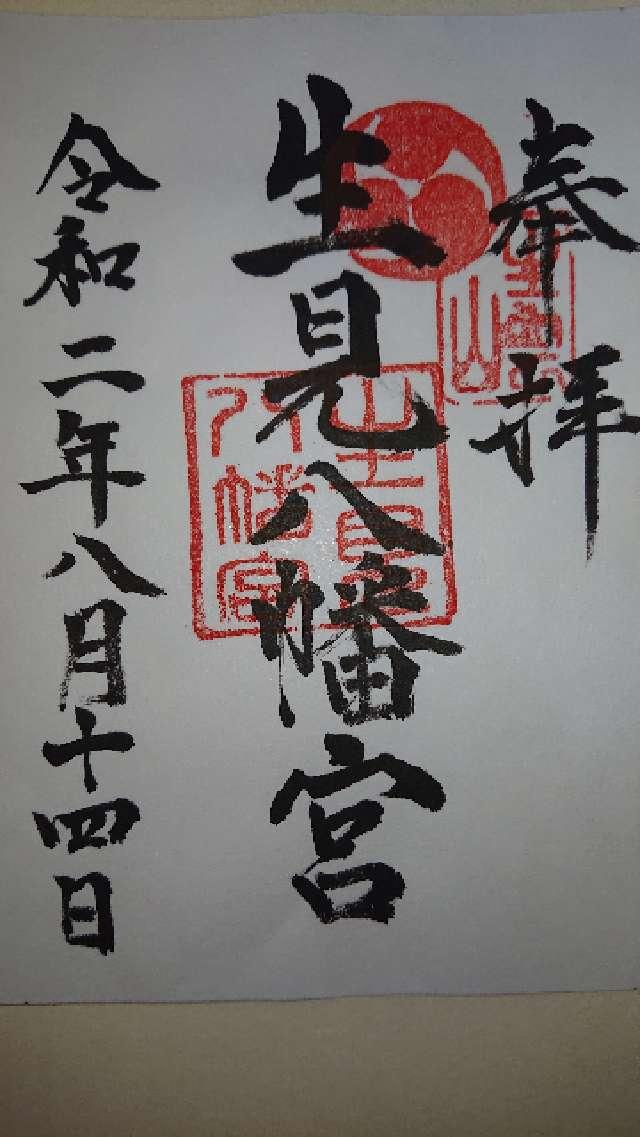 奉拝
生見八幡宮
令和二年八月十四日
生見八幡宮